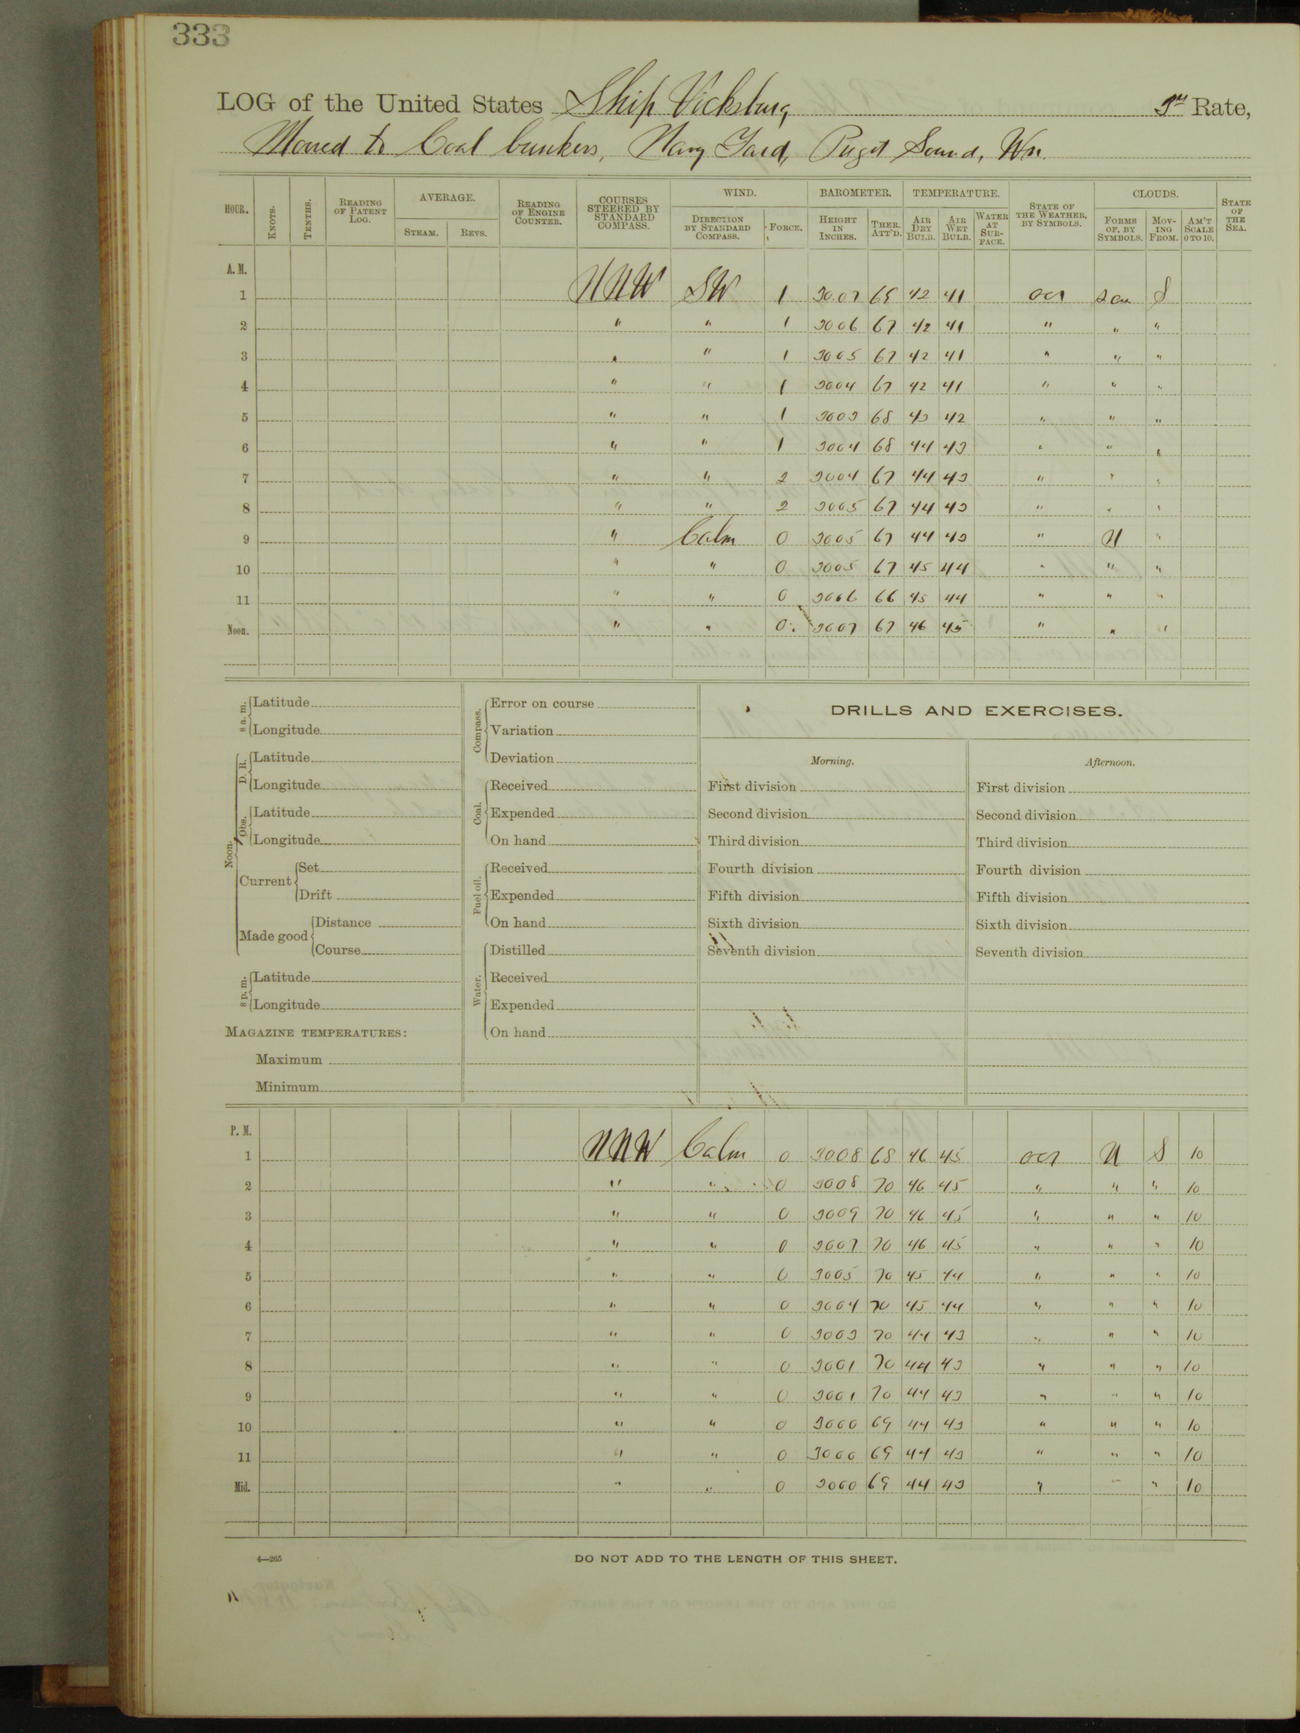 333
LOG of the United States Ship Vicksburg, 3rd Rate,
Moored to Coal bunkers, Navy Yard, Puget Sound, Wn.
HOUR. KNOTS. TENTHS. READING OF PATENT LOG. AVERAGE. STEAM. REVS. READING OF ENGINE COUNTER. COURSES STEERED BY STANDARD COMPASS. WIND. DIRECTION BY STANDARD COMPASS. FORCE. BAROMETER. HEIGHT IN INCHES. THER. ATT'D. TEMPERATURE. AIR DRY BULB. AIR WET BULB. WATER AT SURFACE. STATE OF THE WEATHER, BY SYMBOLS. CLOUDS. FORMS OF, BY SYMBOLS. MOVING FROM. AM'T SCALE 0 TO 10. STATE OF THE SEA.
A. M.
1 NNW SW 1 3007 42 41 S
2 " " 1 3006 67 42 41 " " "
3 " " 1 3005 67 42 41 " " "
4 " " 1 3004 67 42 41 " " "
5 " " 1 3003 68 43 42 " " "
6 " " 1 3004 68 44 43 " " "
7 " " 2 3004 67 44 43 " " "
8 " " 2 3005 67 44 43 " " "
9 " Calm 0 3005 67 44 43 " N "
10 " " 0 3005 67 45 44 " " "
11 " " 0 3006 66 45 44 " " "
Noon. " " 0 3007 67 46 45 " " "
8 a. m. Latitude
Longitude
Noon. D. R. Latitude
Longitude
Obs. Latitude
Longitude
Current Set
Drift
Made good Distance
Course
8 p. m. Latitude
Longitude
MAGAZINE TEMPERATURES:
Maximum
Minimum
Compass. Error on course
Variation
Deviation
Coal. Received
Expended
On hand
Fuel oil. Received
Expended
On hand
Water. Distilled
Received
Expended
On hand
DRILLS AND EXERCISES.
Morning.
First division
Second division
Third division
Fourth division
Fifth division
Sixth division
Seventh division
Afternoon.
First division
Second division
Third division
Fourth division
Fifth division
Sixth division
Seventh division
P. M.
1 NNW Calm 0 3008 68 46 45 N S 10
2 " " 0 3008 70 46 45 " " " 10
3 " " 0 3009 70 46 45 " " " 10
4 " " 0 3007 70 46 45 " " " 10
5 " " 0 3005 70 45 44 " " " 10
6 " " 0 3004 70 45 44 " " " 10
7 " " 0 3003 70 44 43 " " " 10
8 " " 0 3001 70 44 43 " " " 10
9 " " 0 3001 70 44 43 " " " 10
10 " " 0 3000 69 44 43 " " " 10
11 " " 0 3000 69 44 43 " " " 10
Mid. " " 0 3000 69 44 43 " " " 10
4—265
DO NOT ADD TO THE LENGTH OF THIS SHEET.